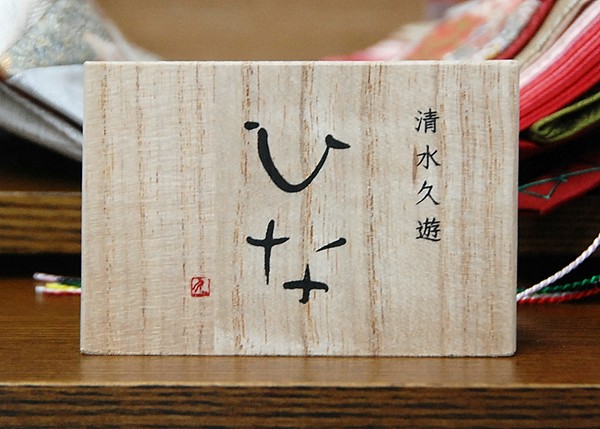 清水久遊
ひな